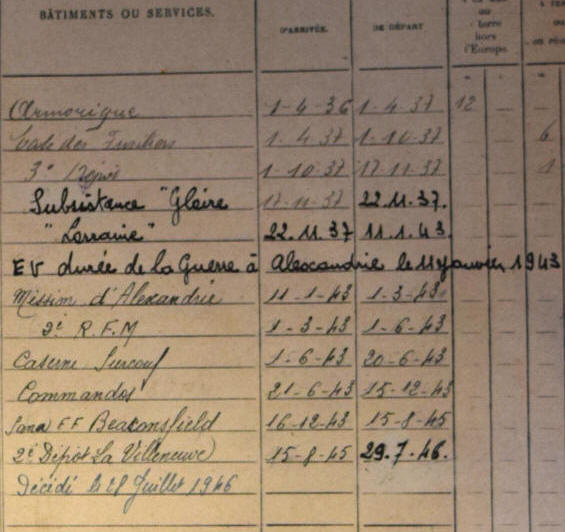 BÂTIMENTS OU SERVICES. D'ARRIVÉE. DE DÉPART ou terre hors d'Europe
Armorique 1-4-36 1-4-37 12
des Fusiliers 1-4-37 1-10-37 6
3e Dépôt 1-10-37 17-11-37 1
Subsistance "Gloire 17-11-37 22.11.37.
"Lorraine" 22.11.37 11.1.43.
EV durée de la Guerre à Alexandrie le 11 Janvier 1943
Mission d'Alexandrie 11-1-43 1-3-43
2e R.F.M 1-3-43 1-6-43
Caserne Surcouf 1-6-43 20-6-43
Commandos 21-6-43 15-12-43
Sana FF Beaconsfield 16-12-43 15-8-45
2e Dépôt La Villeneuve 15-8-45 29.7.46.
Décédé le 28 Juillet 1946